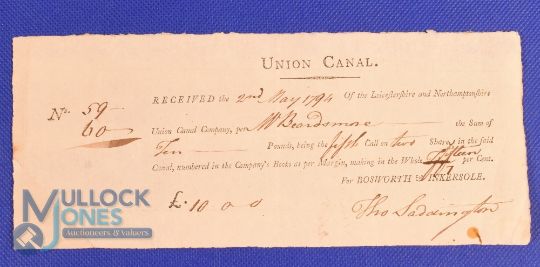 UNION CANAL.
RECEIVED the 2nd May 1794 Of the Leicestershire and Northamptonshire
No. 59
60
Union Canal Company, per W Beardsmore the Sum of
Ten Pounds, being the fifth Call on two Shares in the said
Canal, numbered in the Company's Books as per Margin, making in the Whole fifteen per Cent.
For BOSWORTH & INKERSOLE.
£. 10 0 0
Tho Saddington
MULLOCK
JONES
Auctioneers & Valuers